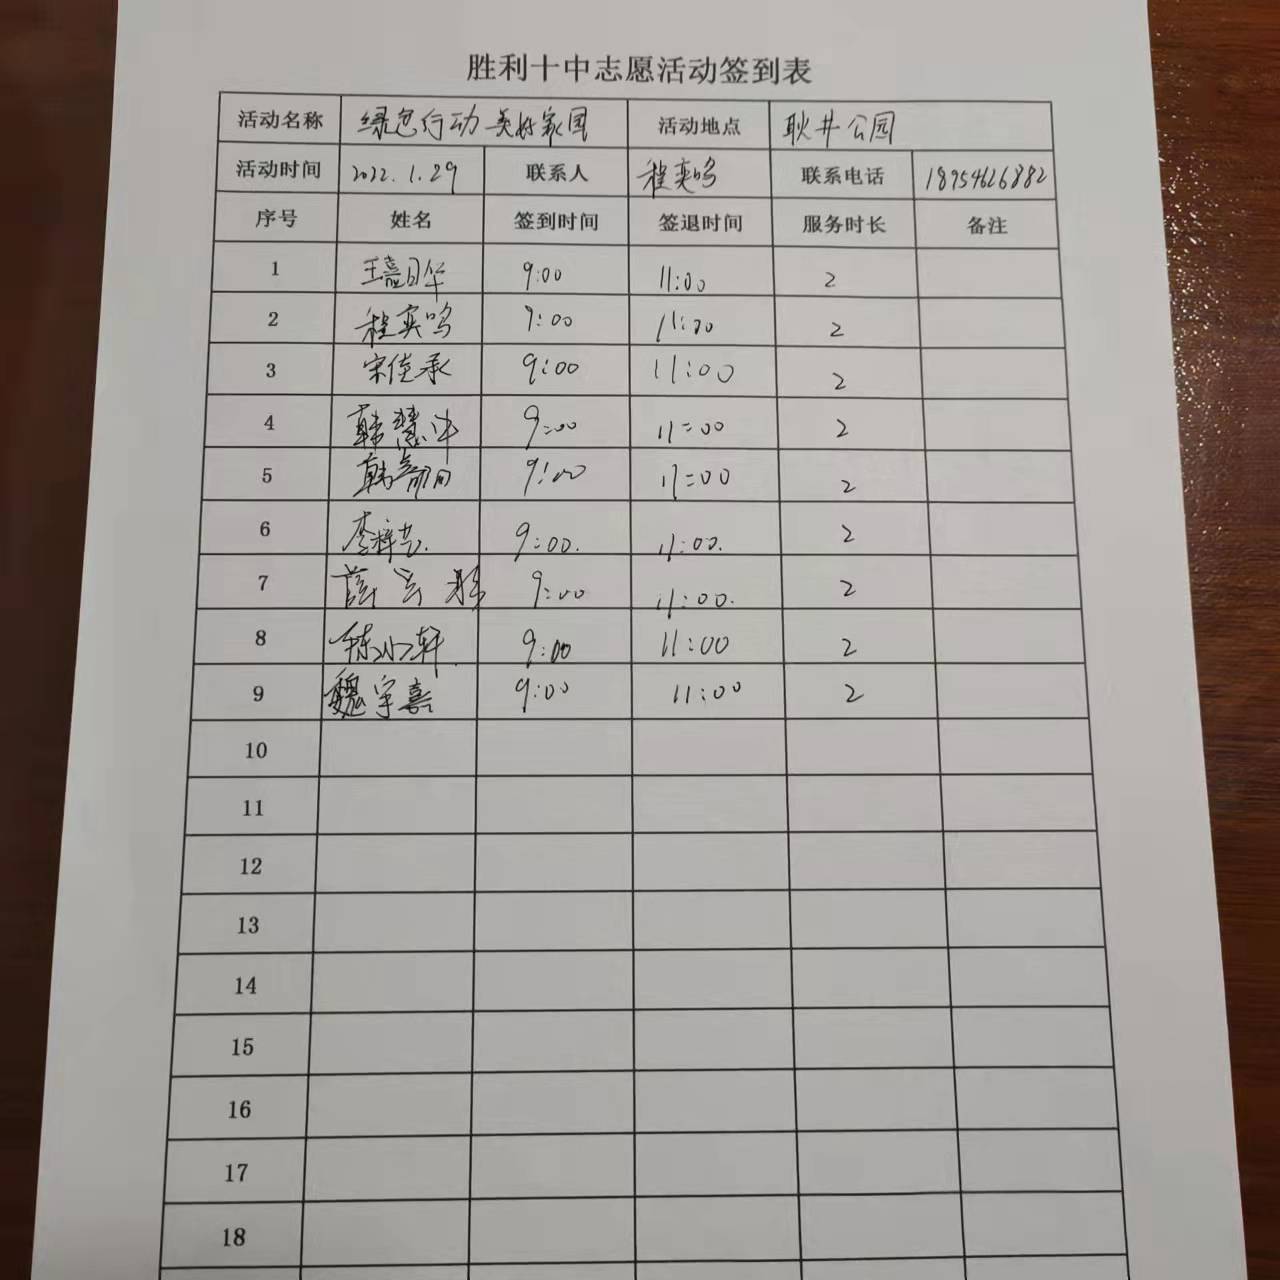 胜利十中志愿活动签到表
活动名称 绿色行动 美好家园 活动地点 耿井公园
活动时间 2022.1.29 联系人 程奕鸣 联系电话 18954626882
序号 姓名 签到时间 签退时间 服务时长 备注
1 9:00 11:00 2
2 程奕鸣 9:00 11:00 2
3 宋佳承 9:00 11:00 2
4 韩慧 9:00 11:00 2
5 韩 9:00 11:00 2
6 李梓艺. 9:00. 11:00. 2
7 薛 9:00 11:00. 2
8 轩 9:00 11:00 2
9 魏宇嘉 9:00 11:00 2
10
11
12
13
14
15
16
17
18